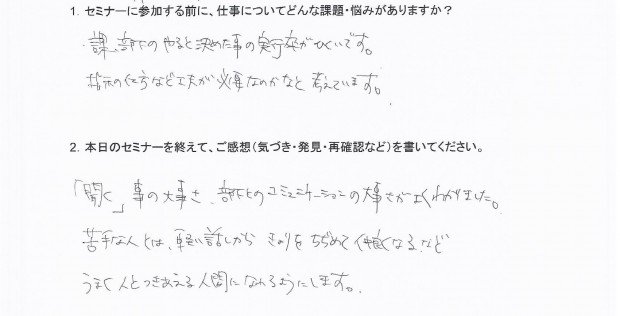 1. セミナーに参加する前に、仕事についてどんな課題・悩みがありますか？
・課、部下のやると決めた事の実行率がひくいです。
指示の仕方など工夫が必要なのかなと考えています。
2. 本日のセミナーを終えて、ご感想（気づき・発見・再確認など）を書いてください。
「聞く」事の大事さ、部下とのコミュニケーションの大事さがよくわかりました。
苦手な人とは、軽い話しから きょりをちぢめて仲良くなる、など
うまく人とつきあえる人間になれるようにします。